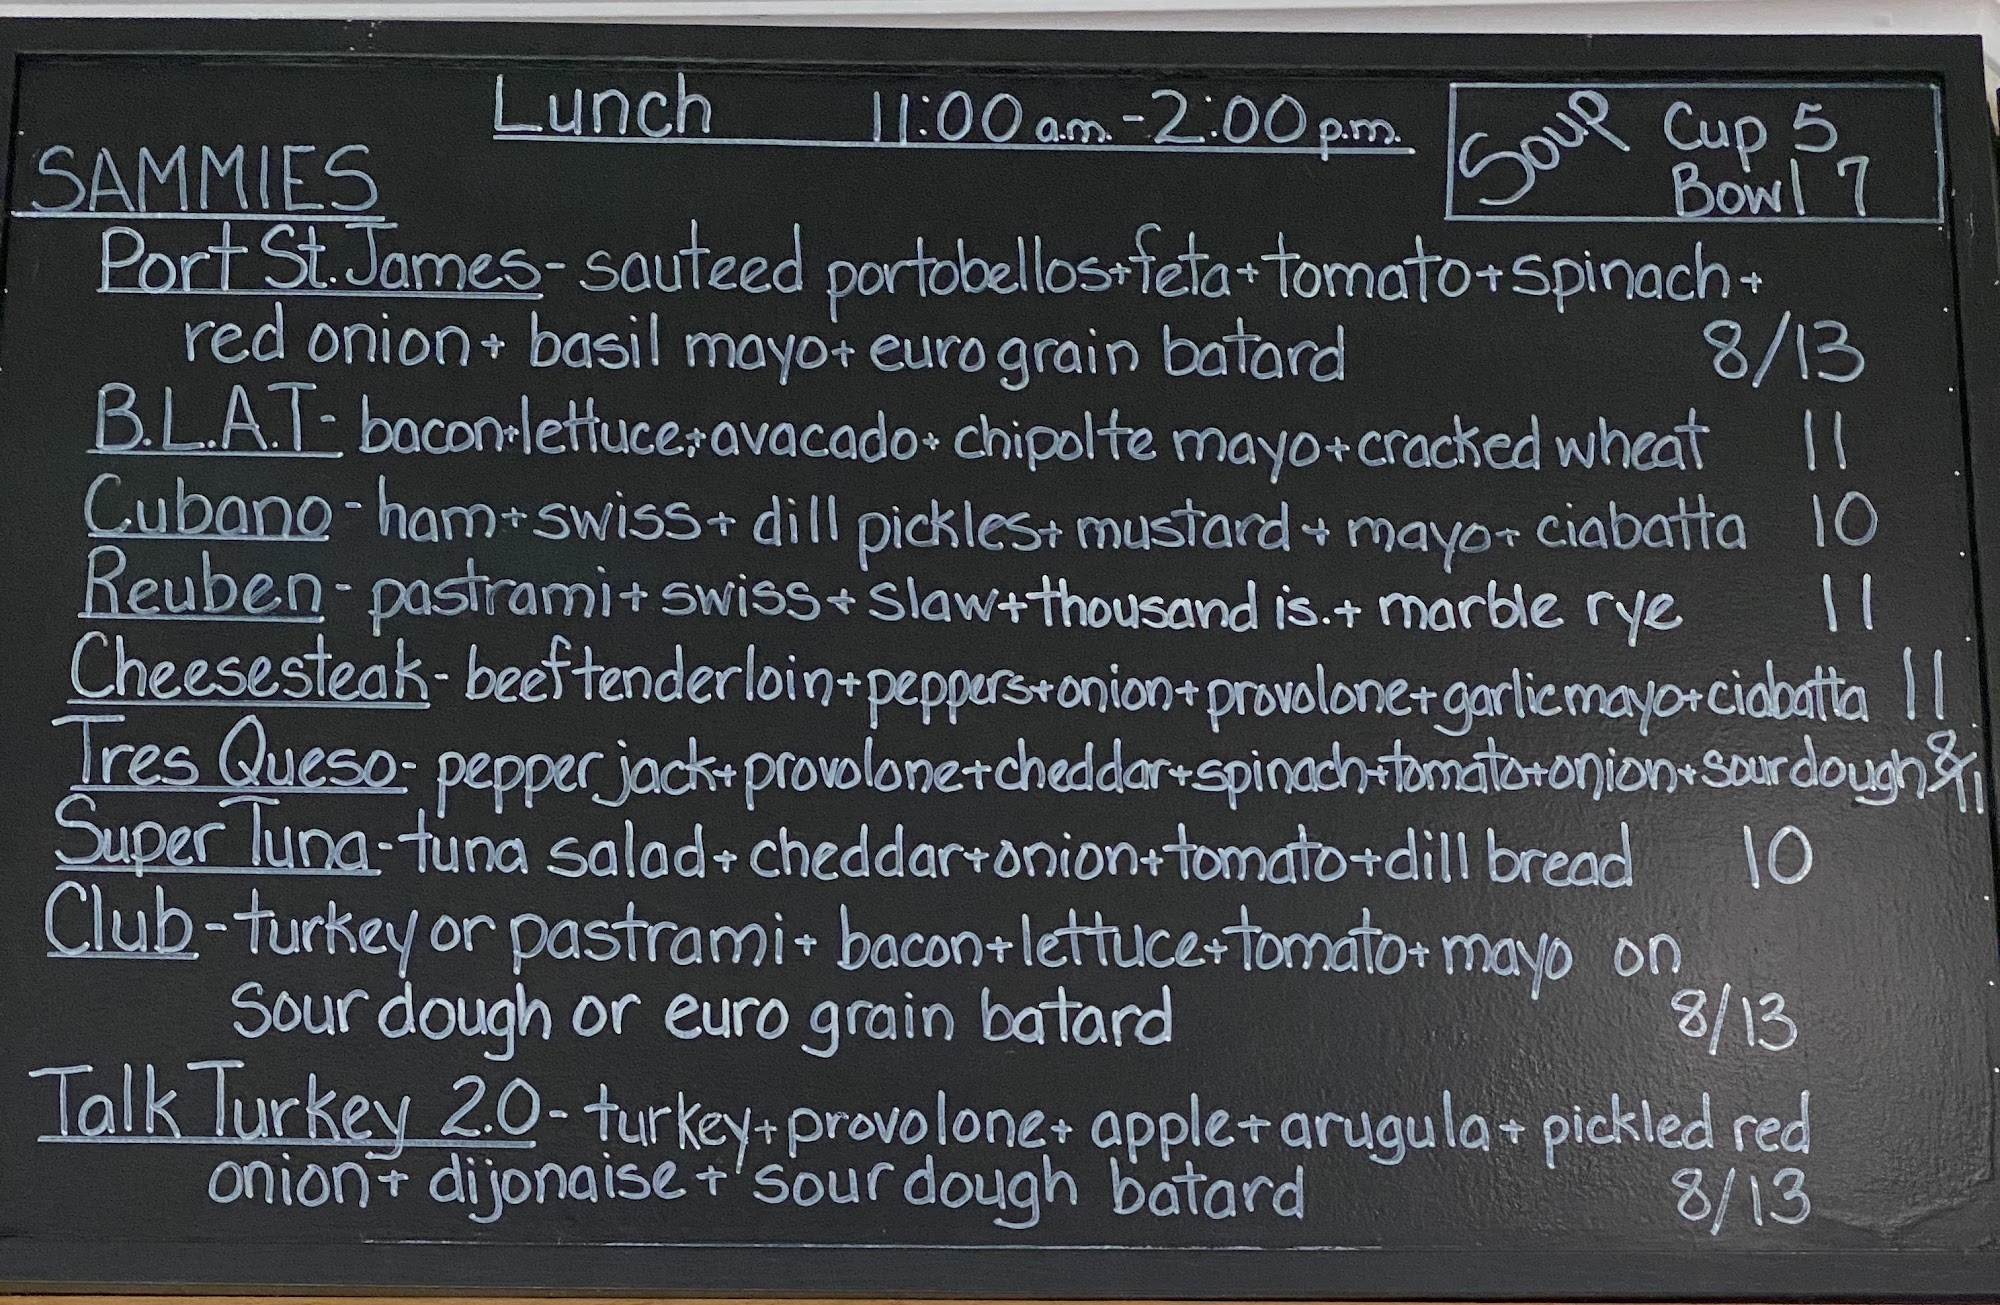 Lunch 11:00 a.m. - 2:00 p.m.
Soup Cup 5
Bowl 7
SAMMIES
Port St. James - sauteed portobellos + feta + tomato + spinach +
red onion + basil mayo + euro grain batard 8/13
B.L.A.T - bacon + lettuce + avacado + chipolte mayo + cracked wheat 11
Cubano - ham + swiss + dill pickles + mustard + mayo + ciabatta 10
Reuben - pastrami + swiss + slaw + thousand is. + marble rye 11
Cheesesteak - beef tenderloin + peppers + onion + provolone + garlic mayo + ciabatta 11
Tres Queso - pepper jack + provolone + cheddar + spinach + tomato + onion + sour dough 8/11
Super Tuna - tuna salad + cheddar + onion + tomato + dill bread 10
Club - turkey or pastrami + bacon + lettuce + tomato + mayo on
sour dough or euro grain batard 8/13
Talk Turkey 2.0 - turkey + provolone + apple + arugula + pickled red
onion + dijonaise + sour dough batard 8/13